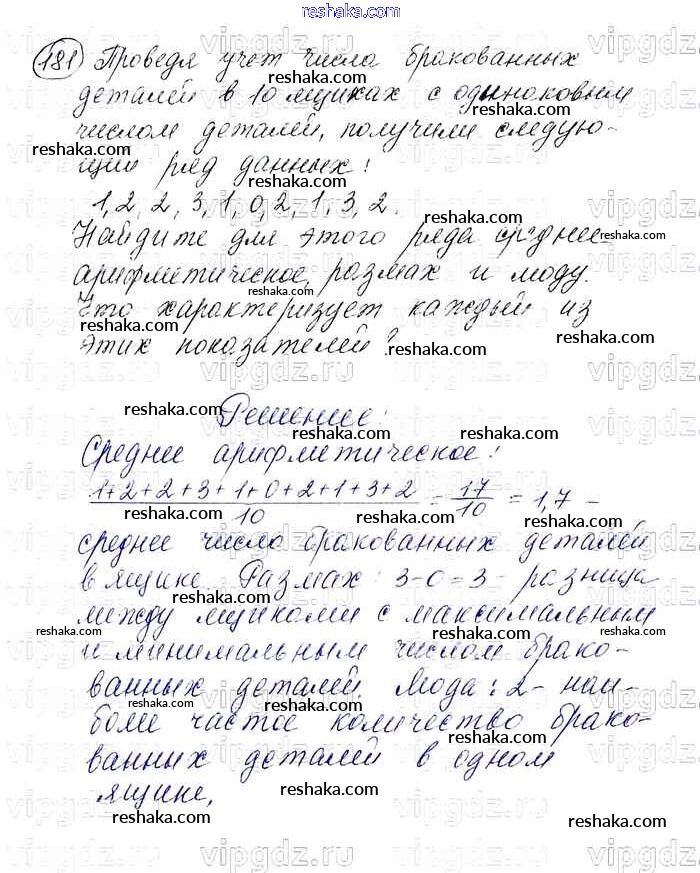 181 Проведя учет числа бракованных
деталей в 10 ящиках с одинаковым
числом деталей, получили следую-
щий ряд данных:
1, 2, 2, 3, 1, 0, 2, 1, 3, 2.
Найдите для этого ряда среднее
арифметическое, размах и моду.
Что характеризует каждый из
этих показателей?
Решение:
Среднее арифметическое:
1+2+2+3+1+0+2+1+3+2/10 = 17/10 = 1,7 -
среднее число бракованных деталей
в ящике. Размах: 3-0=3 - разница
между ящиками с максимальным
и минимальным числом брако-
ванных деталей. Мода: 2 - наи-
боле частое количество брако-
ванных деталей в одном
ящике,